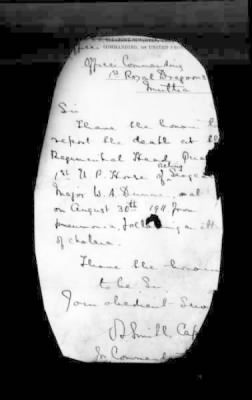 COMMANDING, 1ST UNITED PRO
Office Commanding
1st Royal Dragoons
Muttra
Sir
I have the honour
report the death at
Regimental Head Qua
Acting
1st U. P. Horse of
Major W. A.
on August 30th 1911 from
pneumonia, following a
of cholera.
I have the honour
to be Sir
Your obedient Serv
Smith Cap
In Command